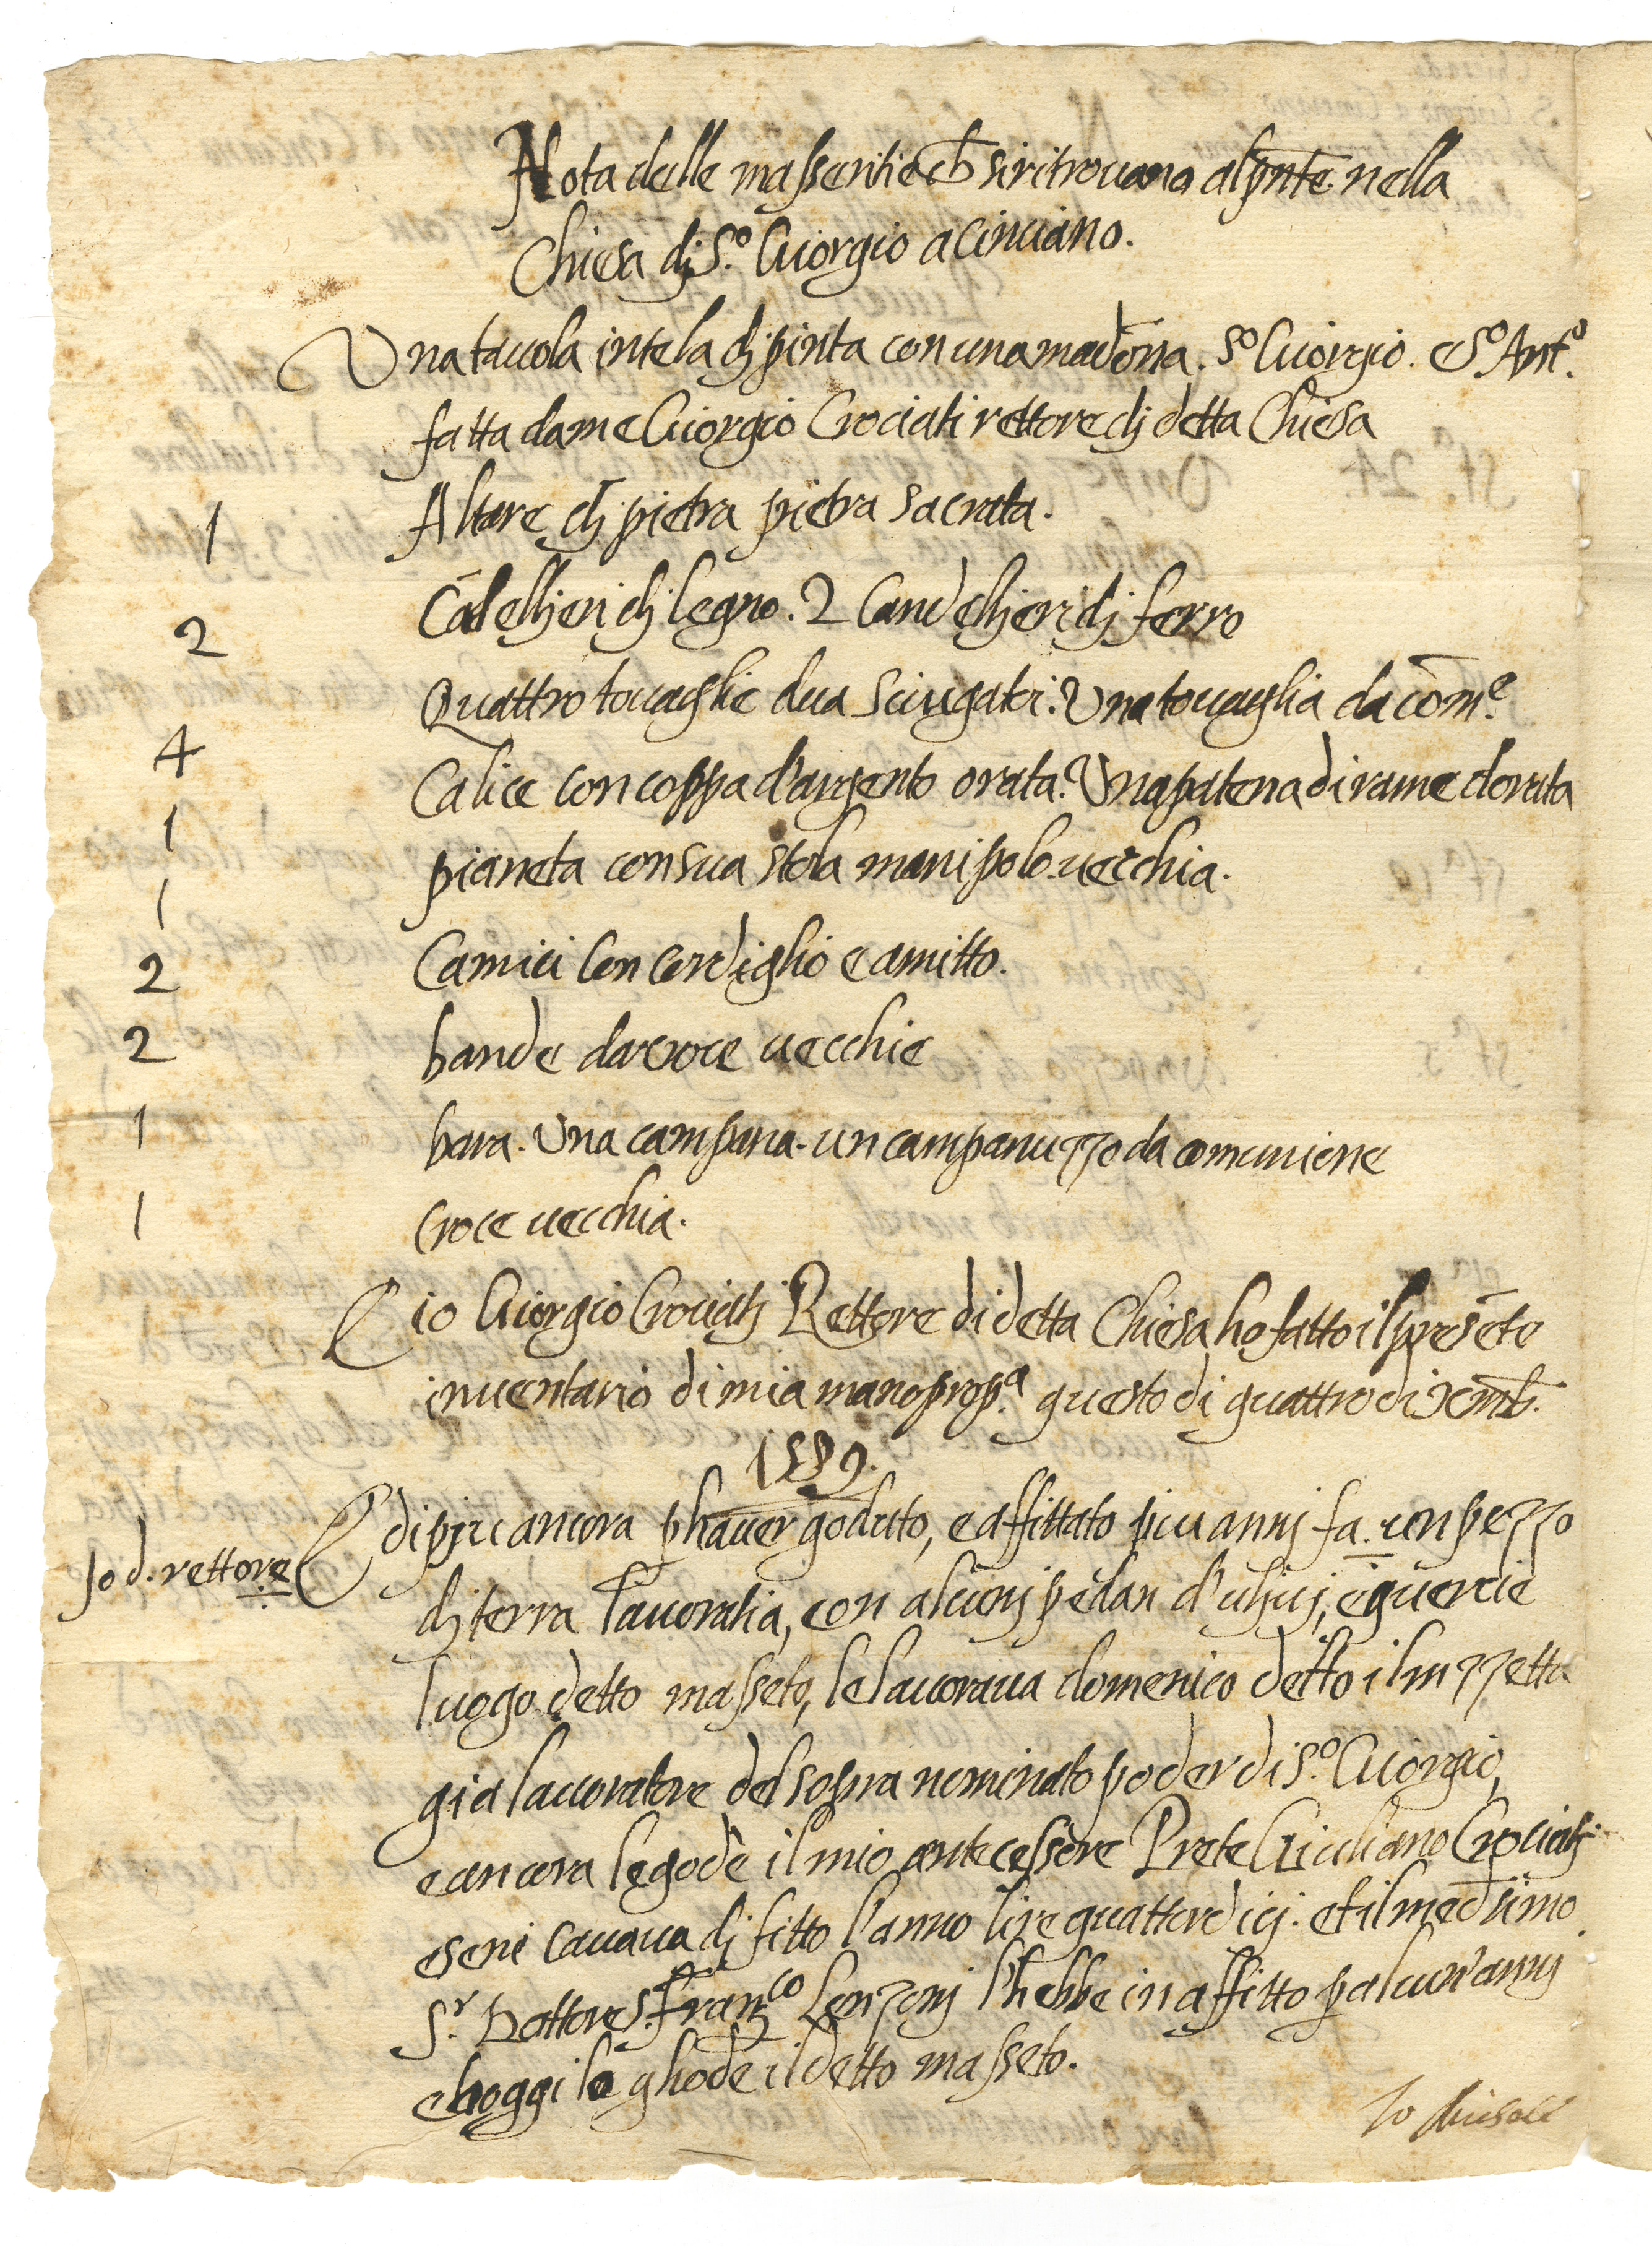 Nota delle masseritie ch si ritrovano al pnte nella
Chiesa di S.o Giorgio a Cinciano.
Una tavola in tela dipinta con una madonna. S.o Giorgio. e S.o Ant.o
fatta da me Giorgio Crociati rettore di detta Chiesa
1 Altare di pietra pietra sacrata.
2 Cādellieri di legno. 2 Candellieri di ferro
4 Quattro tovaglie dua sciugatoi. Una tovaglia da com.e
1 Calice con coppa d'argento orata. Una patena di rame dorata
1 pianeta con sua stola manipolo vecchia.
2 Camici con cordiglio e amitto.
2 bande da croce vecchie
1 bara. Una campana. un campanuzzo da comunione
1 Croce vecchia.
E io Giorgio Crociatj Rettore di detta Chiesa ho fatto il presēte
inventario di mia mano prop.a questo di quattro di xemb.
1589.
Jo d. rettore E di pju ancora p haver goduto, e affittato piu annj fa. un pezzo
di terra lavoratia, con alcunj pedan d'ulivj, e quercie
luogo detto masseto, le lavorava domenico detto il
gia lavoratore del sopra nominato poder di S.o Giorgio,
e ancora le gode il mio antecessore Prete Giuliano Crociatj
e sene cavava dj fitto l'anno lire quattordicj. et il medsimo
S.r Dottore S. Franc.co Lenzonj l'hebbe in affitto p alcun'annj
e hoggi lo ghode il detto masseto.
Jo